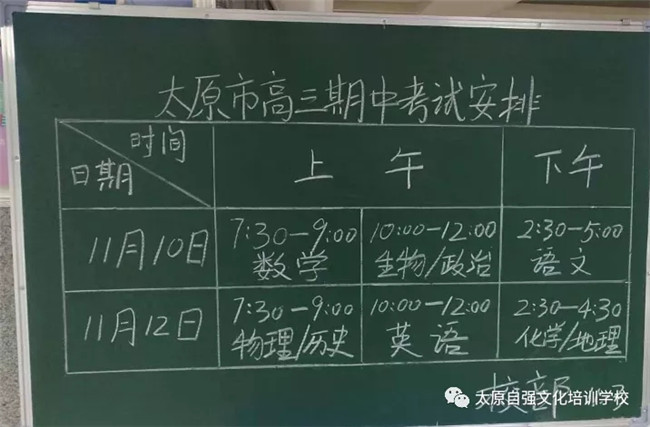 太原市高三期中考试安排
时间
日期
上午
下午
11月10日
7:30—9:00
数学
10:00—12:00
生物/政治
2:30—5:00
语文
11月12日
7:30—9:00
物理/历史
10:00—12:00
英语
2:30—4:30
化学/地理
校部
太原自强文化培训学校